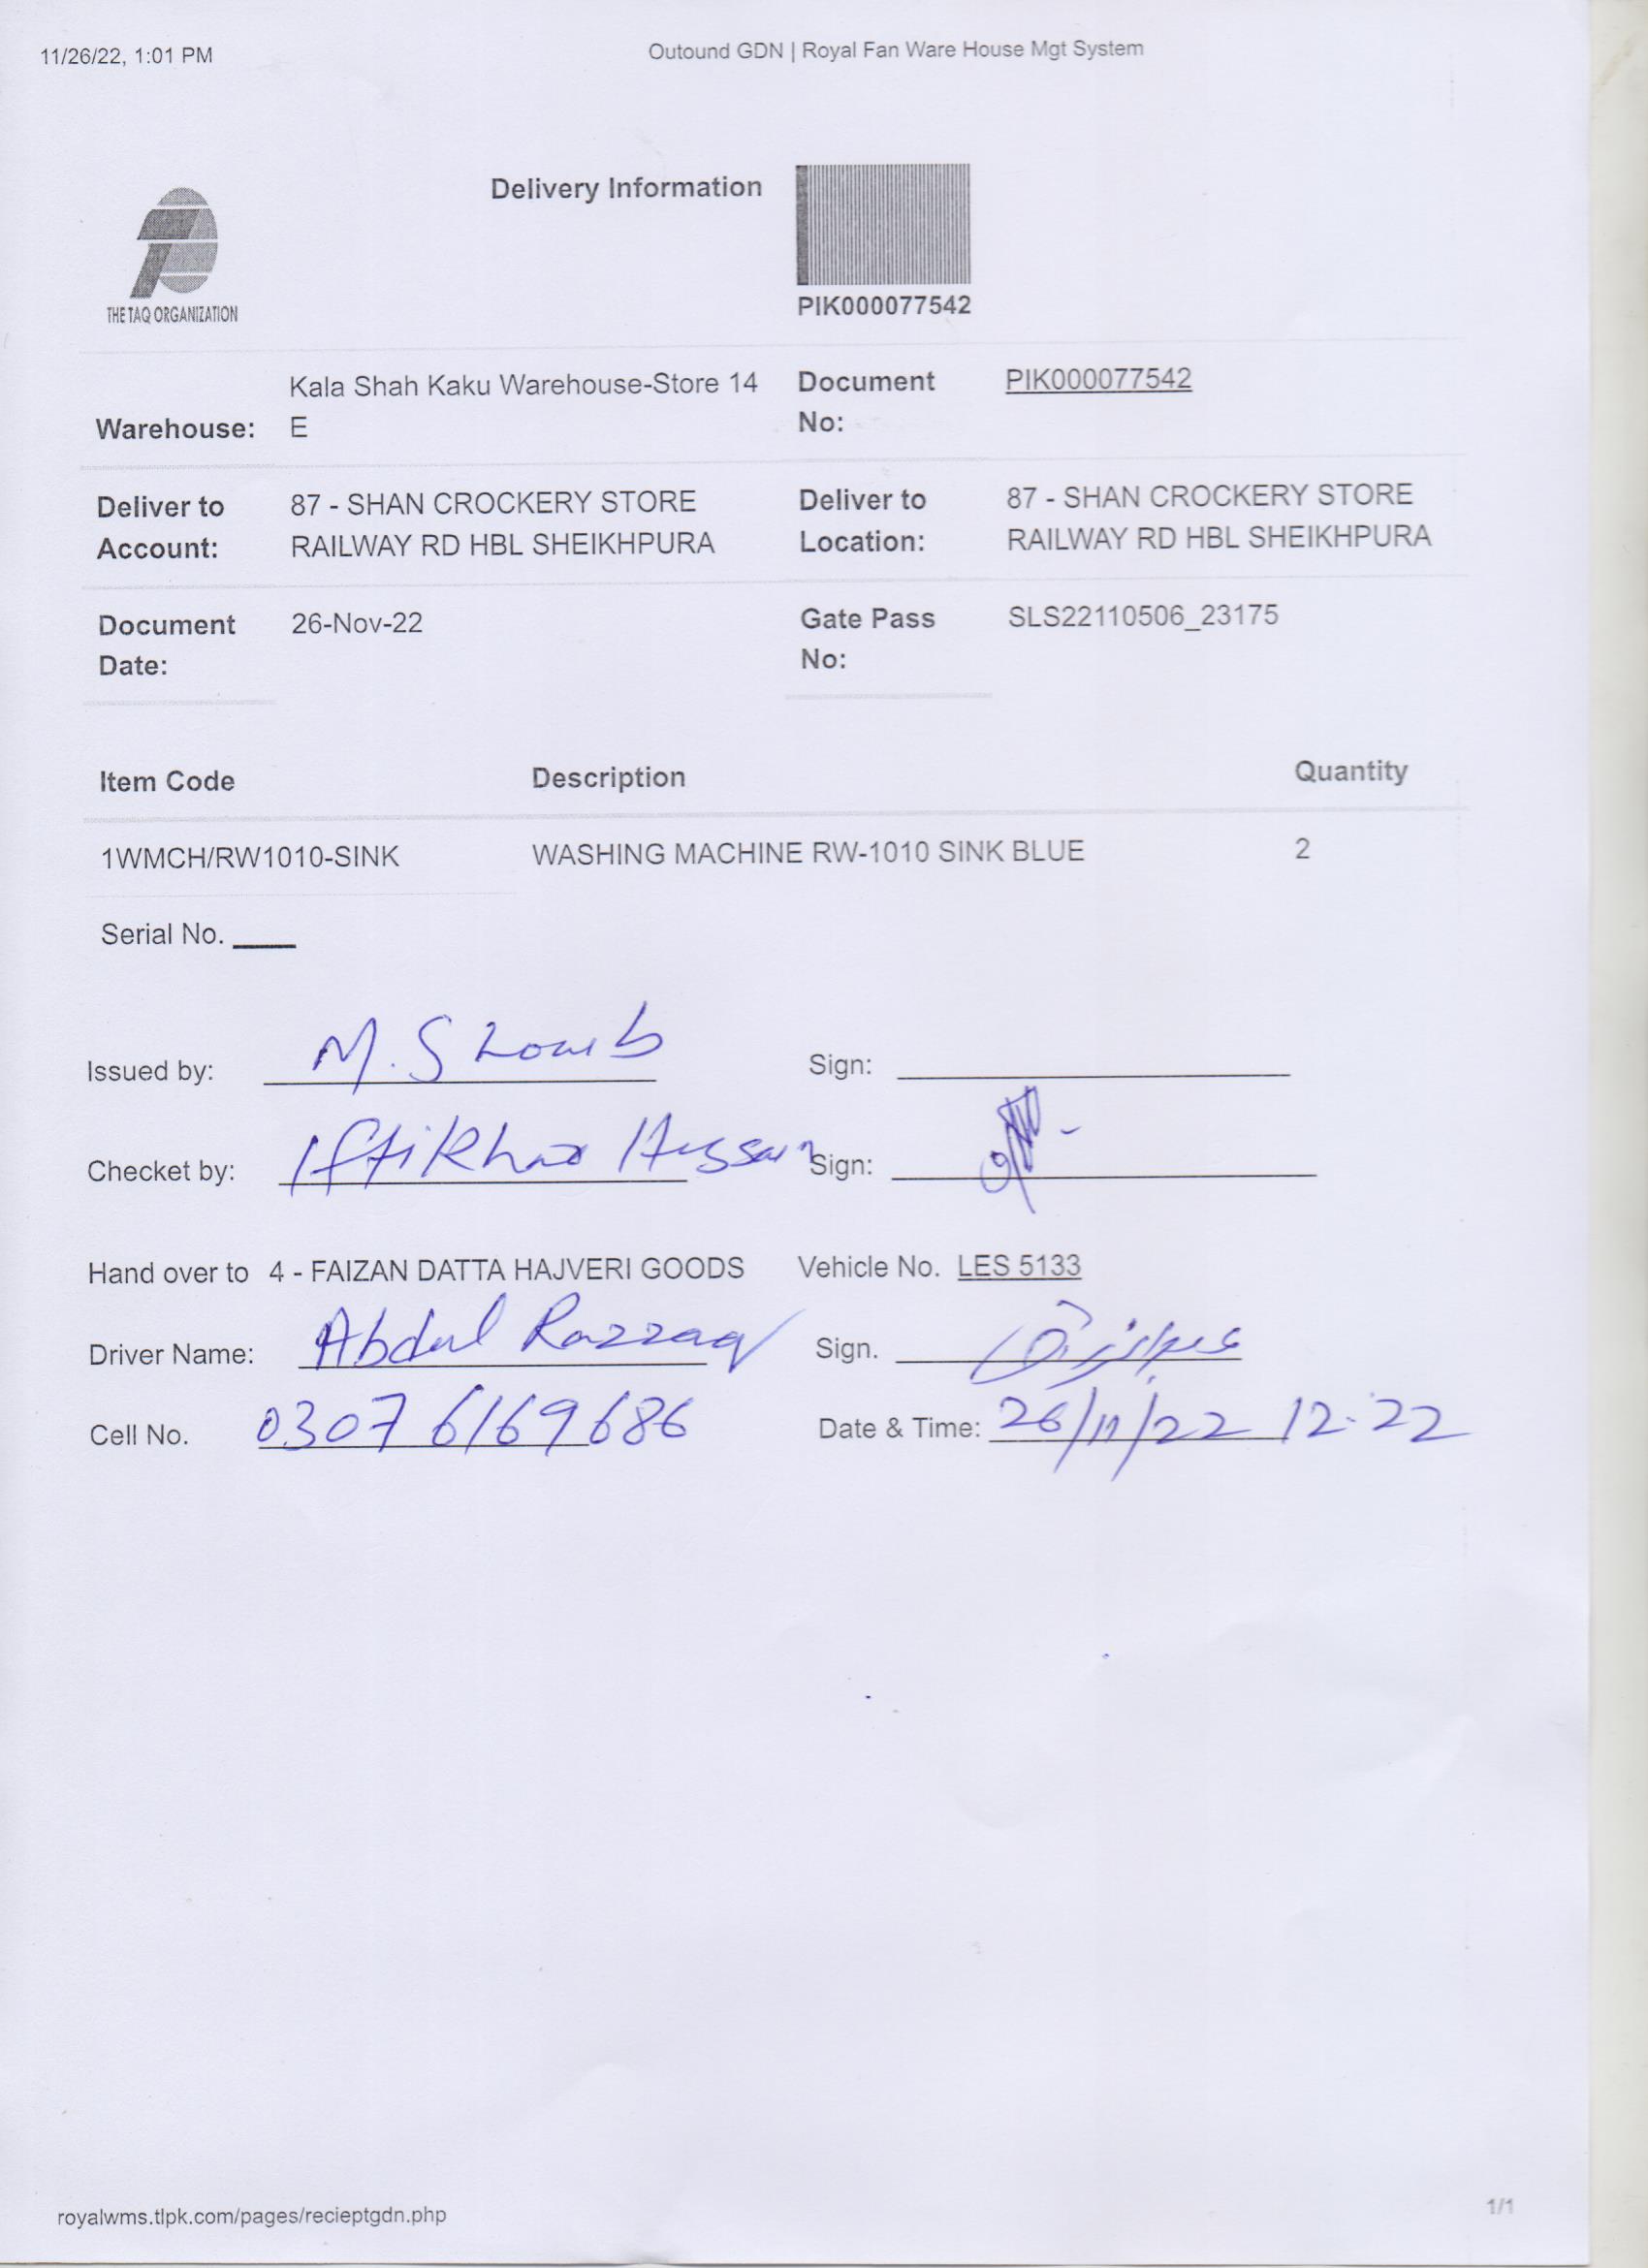 11/26/22, 1:01 PM
Outound GDN | Royal Fan Ware House Mgt System
Delivery Information
THE TAQ ORGANIZATION
PIK000077542
Warehouse: Kala Shah Kaku Warehouse-Store 14 E
Document No: PIK000077542
Deliver to Account: 87 - SHAN CROCKERY STORE RAILWAY RD HBL SHEIKHPURA
Deliver to Location: 87 - SHAN CROCKERY STORE RAILWAY RD HBL SHEIKHPURA
Document Date: 26-Nov-22
Gate Pass No: SLS22110506_23175
Item Code Description Quantity
1WMCH/RW1010-SINK WASHING MACHINE RW-1010 SINK BLUE 2
Serial No.
Issued by: M. Sign:
Checket by: Iftikhar Hussain Sign:
Hand over to 4 - FAIZAN DATTA HAJVERI GOODS Vehicle No. LES 5133
Driver Name: Abdul Razzaq Sign. عبدالرزاق
Cell No. 0307 6169686 Date & Time: 26/11/22 12:22
royalwms.tlpk.com/pages/recieptgdn.php
1/1